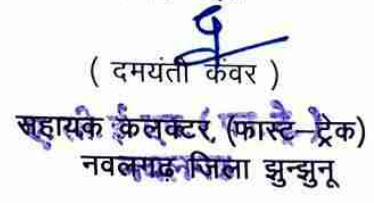 ( दमयंती कंवर )
सहायक कलक्टर, (फास्ट–ट्रेक)
नवलगढ़ जिला झुन्झुनू